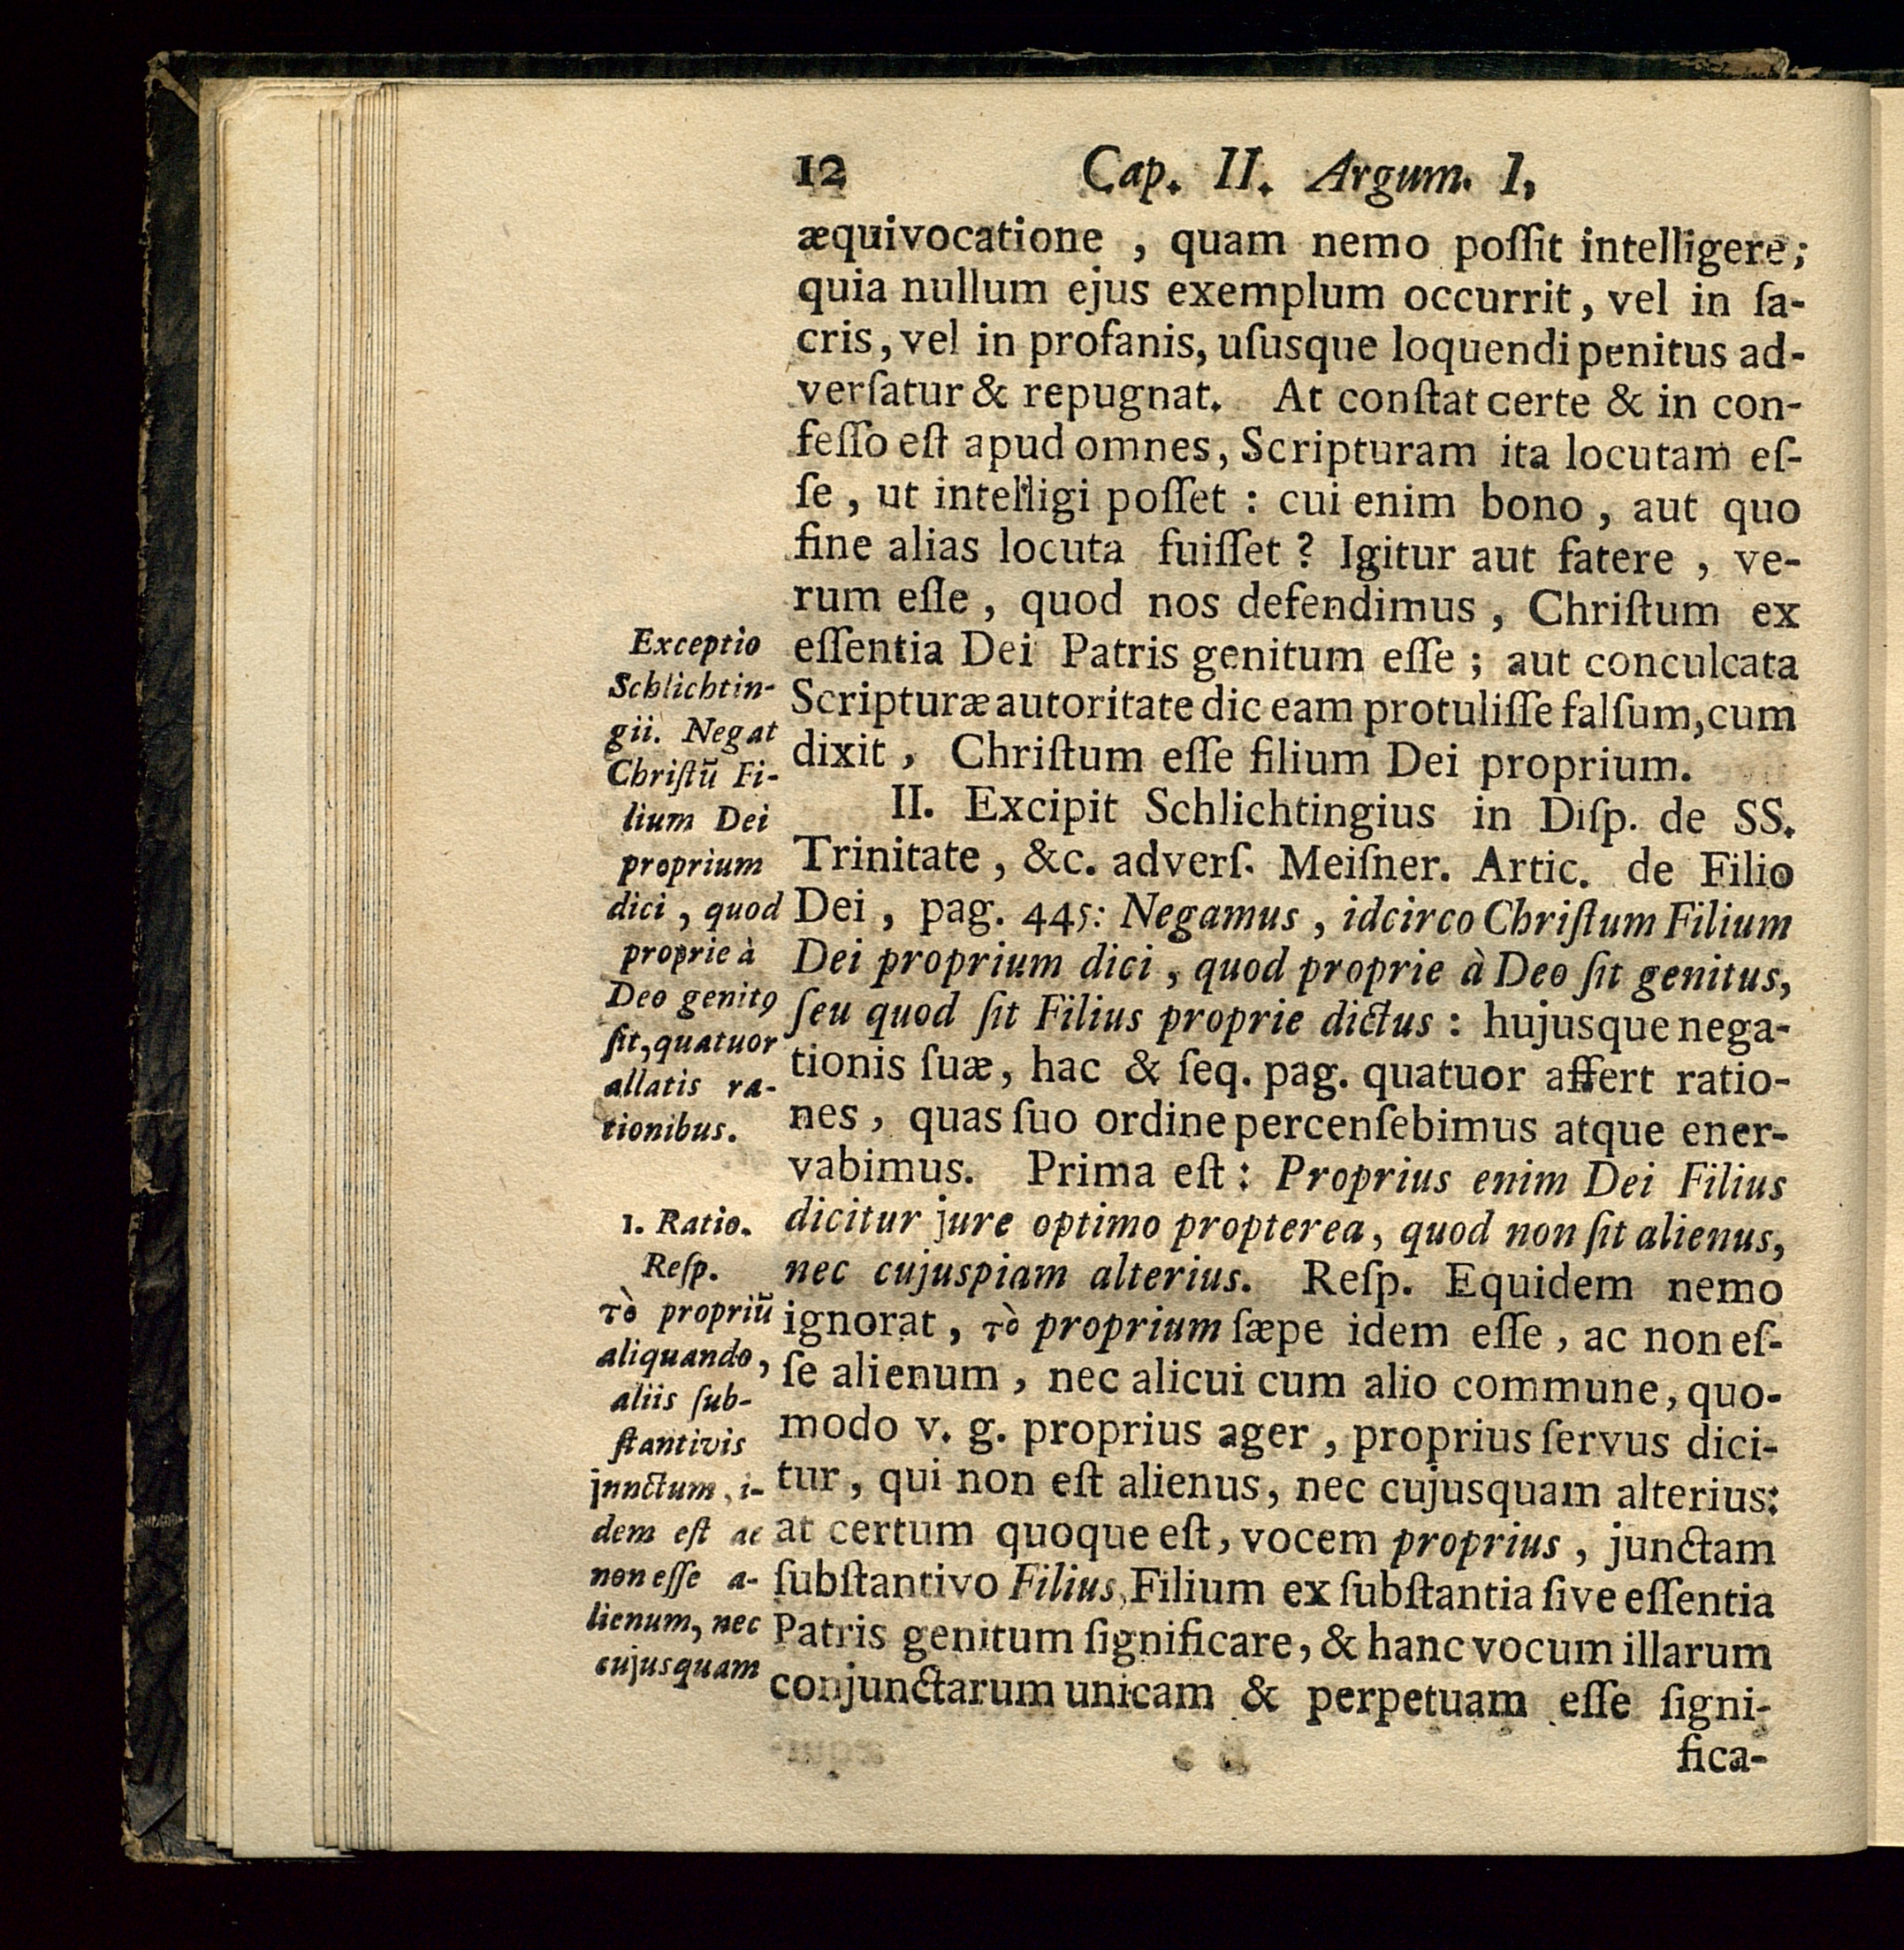 12 Cap. II. Argum. I.
æquivocatione , quam nemo poſſit intelligere;
quia nullum ejus exemplum occurrit, vel in ſa-
cris, vel in profanis, uſusque loquendi penitus ad-
verſatur & repugnat. At conſtat certe & in con-
feſſo eſt apud omnes, Scripturam ita locutam eſ-
ſe , ut intelligi poſſet : cui enim bono , aut quo
fine alias locuta fuiſſet ? Igitur aut fatere , ve-
rum eſſe , quod nos defendimus , Chriſtum ex
eſſentia Dei Patris genitum eſſe ; aut conculcata
Scripturæ autoritate dic eam protuliſſe falſum, cum
dixit , Chriſtum eſſe filium Dei proprium.
II. Excipit Schlichtingius in Diſp. de SS.
Trinitate , &c. adverſ. Meiſner. Artic. de Filio
Dei , pag. 445: Negamus , idcirco Chriſtum Filium
Dei proprium dici , quod proprie à Deo ſit genitus,
ſeu quod ſit Filius proprie dictus : hujusque nega-
tionis ſuæ, hac & ſeq. pag. quatuor affert ratio-
nes , quas ſuo ordine percenſebimus atque ener-
vabimus. Prima eſt : Proprius enim Dei Filius
dicitur jure optimo propterea, quod non ſit alienus,
nec cujuspiam alterius. Reſp. Equidem nemo
ignorat , τὸ proprium ſæpe idem eſſe , ac non eſ-
ſe alienum , nec alicui cum alio commune, quo-
modo v. g. proprius ager , proprius ſervus dici-
tur , qui non eſt alienus, nec cujusquam alterius:
at certum quoque eſt, vocem proprius , junctam
ſubſtantivo Filius, Filium ex ſubſtantia ſive eſſentia
Patris genitum ſignificare, & hanc vocum illarum
conjunctarum unicam & perpetuam eſſe ſigni-
fica-
Exceptio
Schlichtin-
gii. Negat
Chriſtũ Fi-
lium Dei
proprium
dici , quod
proprie à
Deo genitꝯ
ſit, quatuor
allatis ra-
tionibus.
1. Ratio.
Reſp.
τὸ propriũ
aliquando,
aliis ſub-
ſtantivis
jnnctum, i-
dem eſt ac
non eſſe a-
lienum, nec
cujusquam